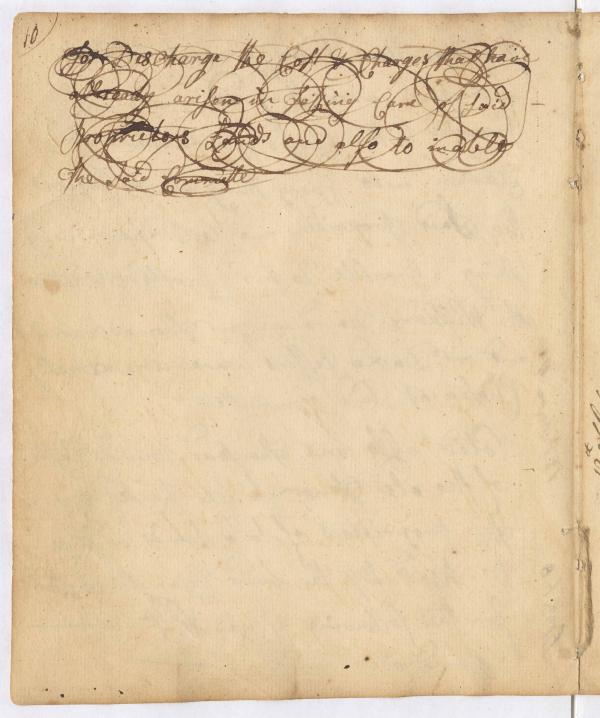 10
for Discharge the Cost & Charges that have
allready arisen in Takeing Care of Said
Proprietors Lands and also to inable
the Said Committe